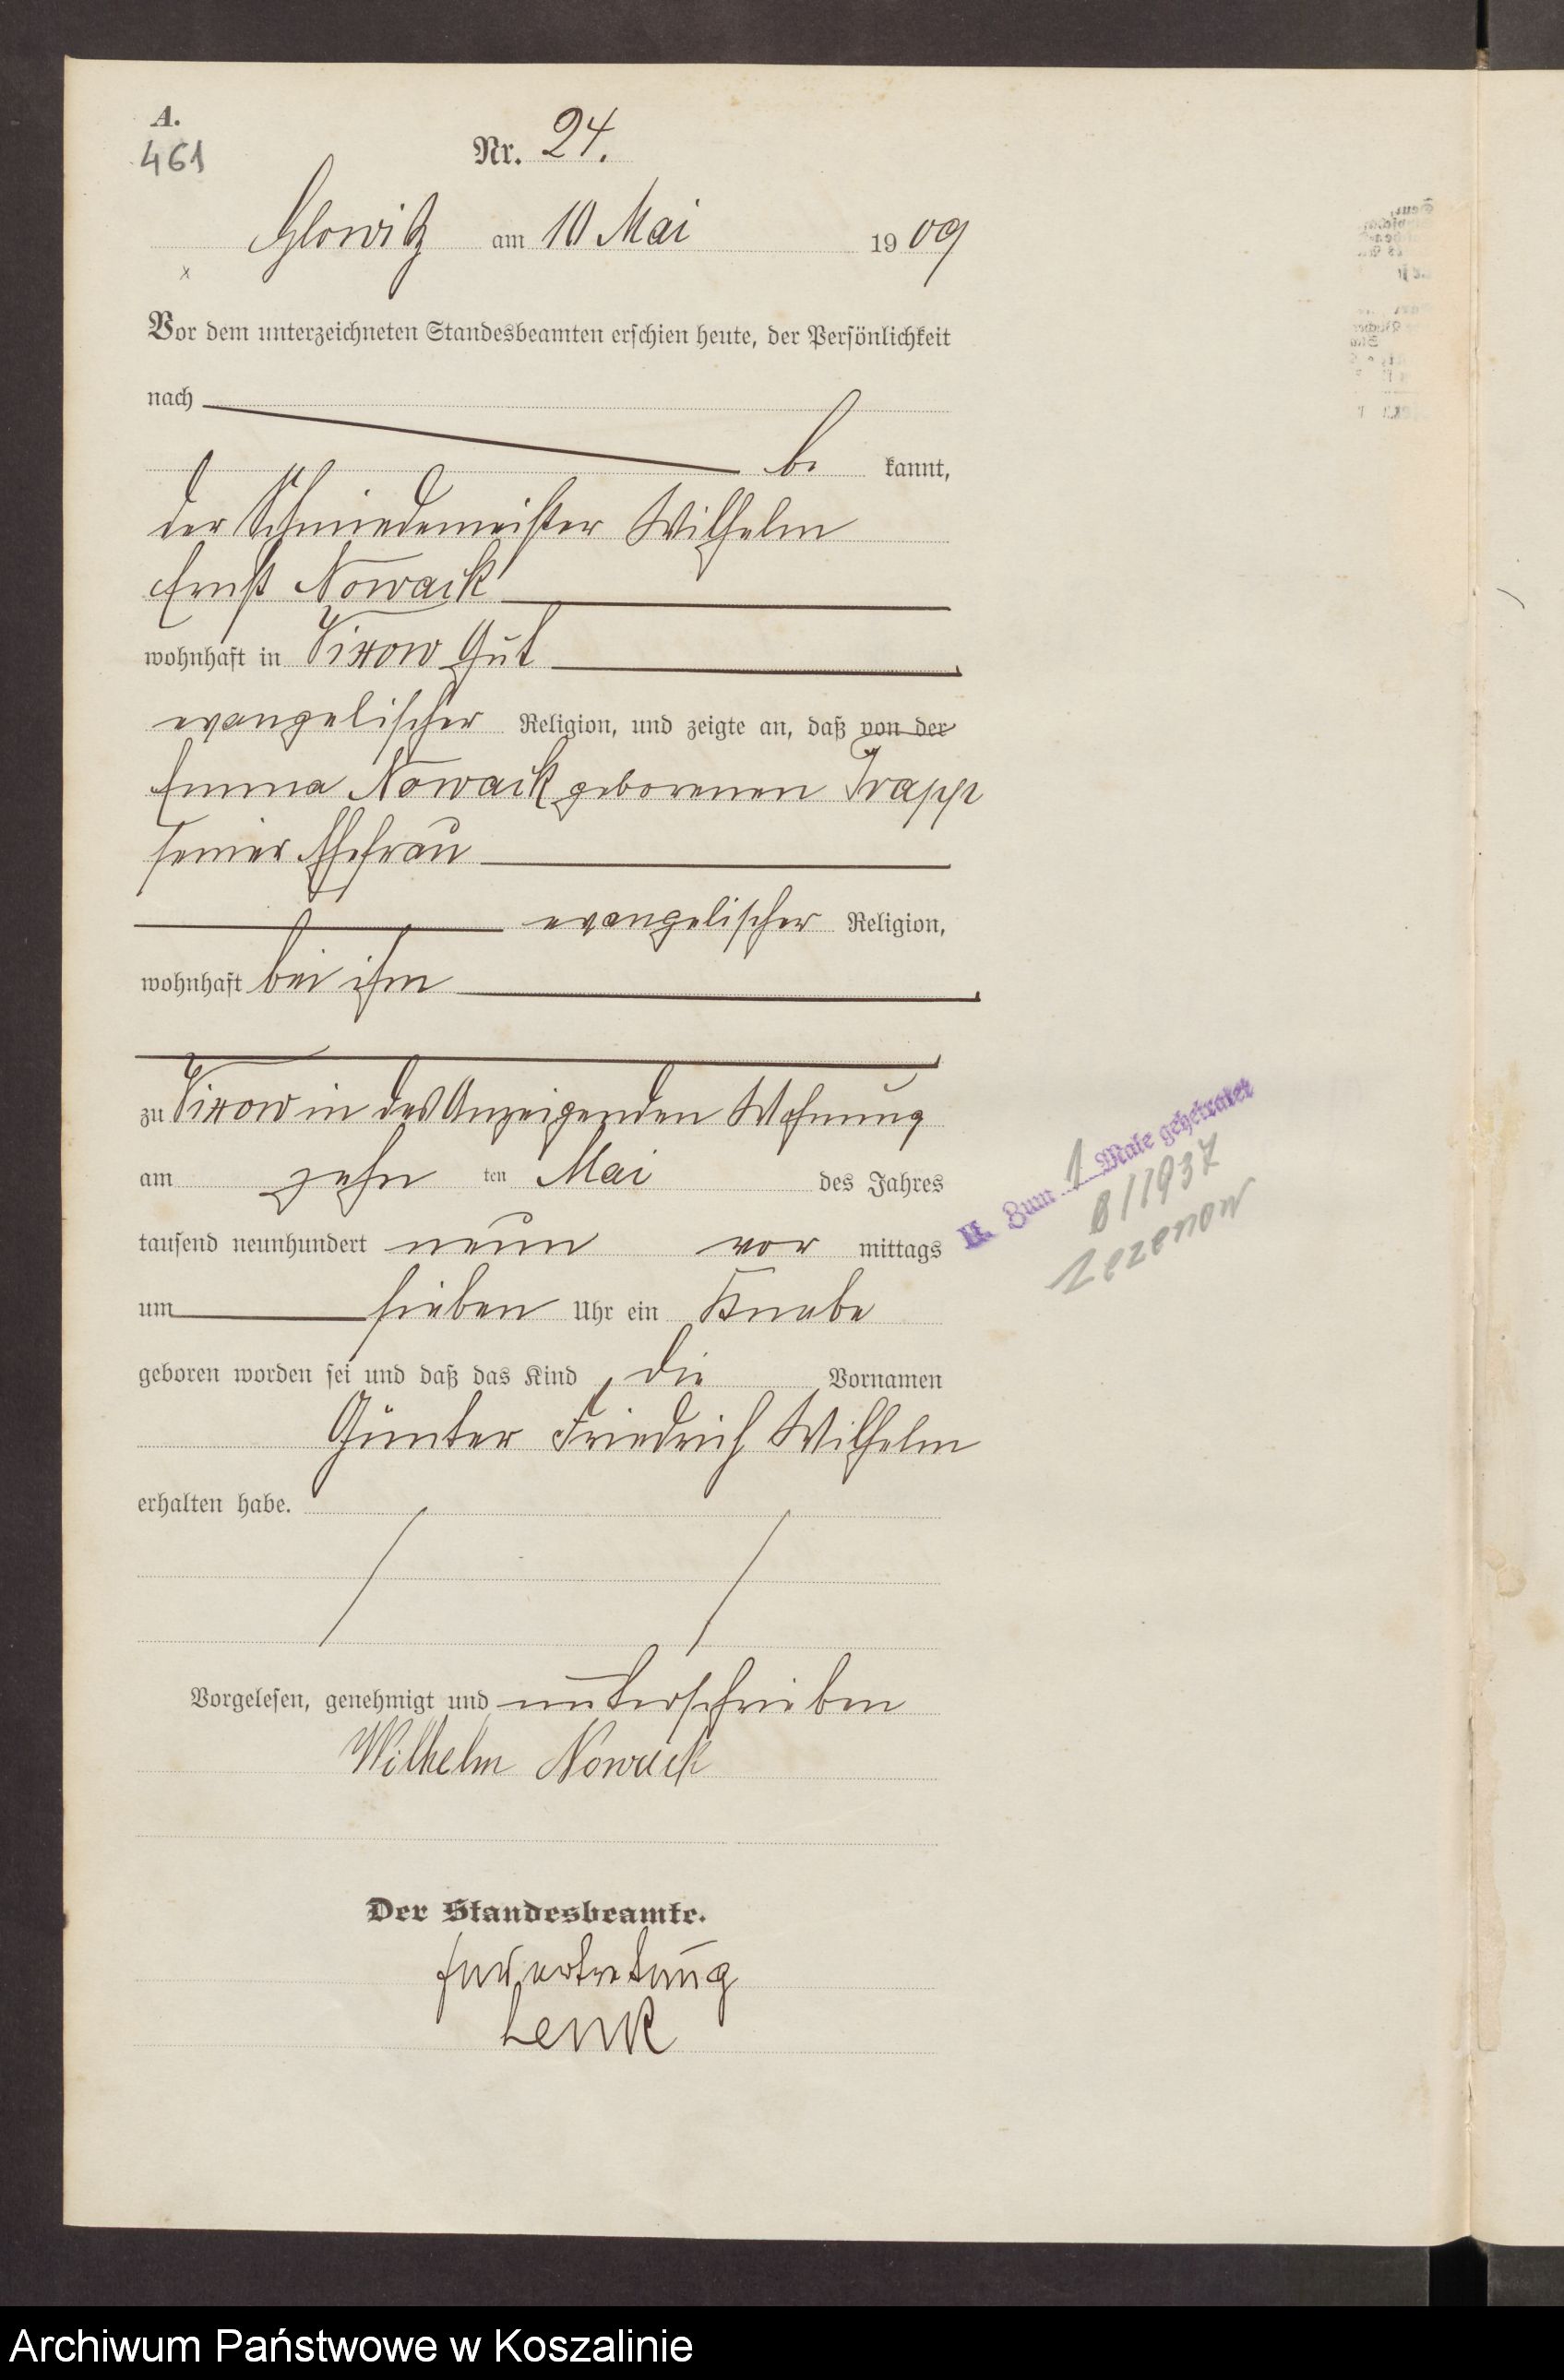 A.
461
Nr. 24.
Glowitz am 10 Mai 1909
Vor dem unterzeichneten Standesbeamten erschien heute, der Persönlichkeit
nach
be kannt,
der Schmiedemeister Wilhelm
Ernst Nowack
wohnhaft in Vixow Gut
evangelischer Religion, und zeigte an, daß von der
Emma Nowack geborenen Trapp
seiner Ehefrau
evangelischer Religion,
wohnhaft bei ihm
zu Vixow in des Anzeigenden Wohnung
am zehn ten Mai des Jahres
tausend neunhundert neun vor mittags
um sieben Uhr ein Knabe
geboren worden sei und daß das Kind die Vornamen
Günter Friedrich Wilhelm
erhalten habe.
Vorgelesen, genehmigt und unterschrieben
Wilhelm Nowack
Der Standesbeamte.
In Vertretung
Lenk
Zum 1 Male geheiratet
8/1937
Zezenow
Archiwum Państwowe w Koszalinie